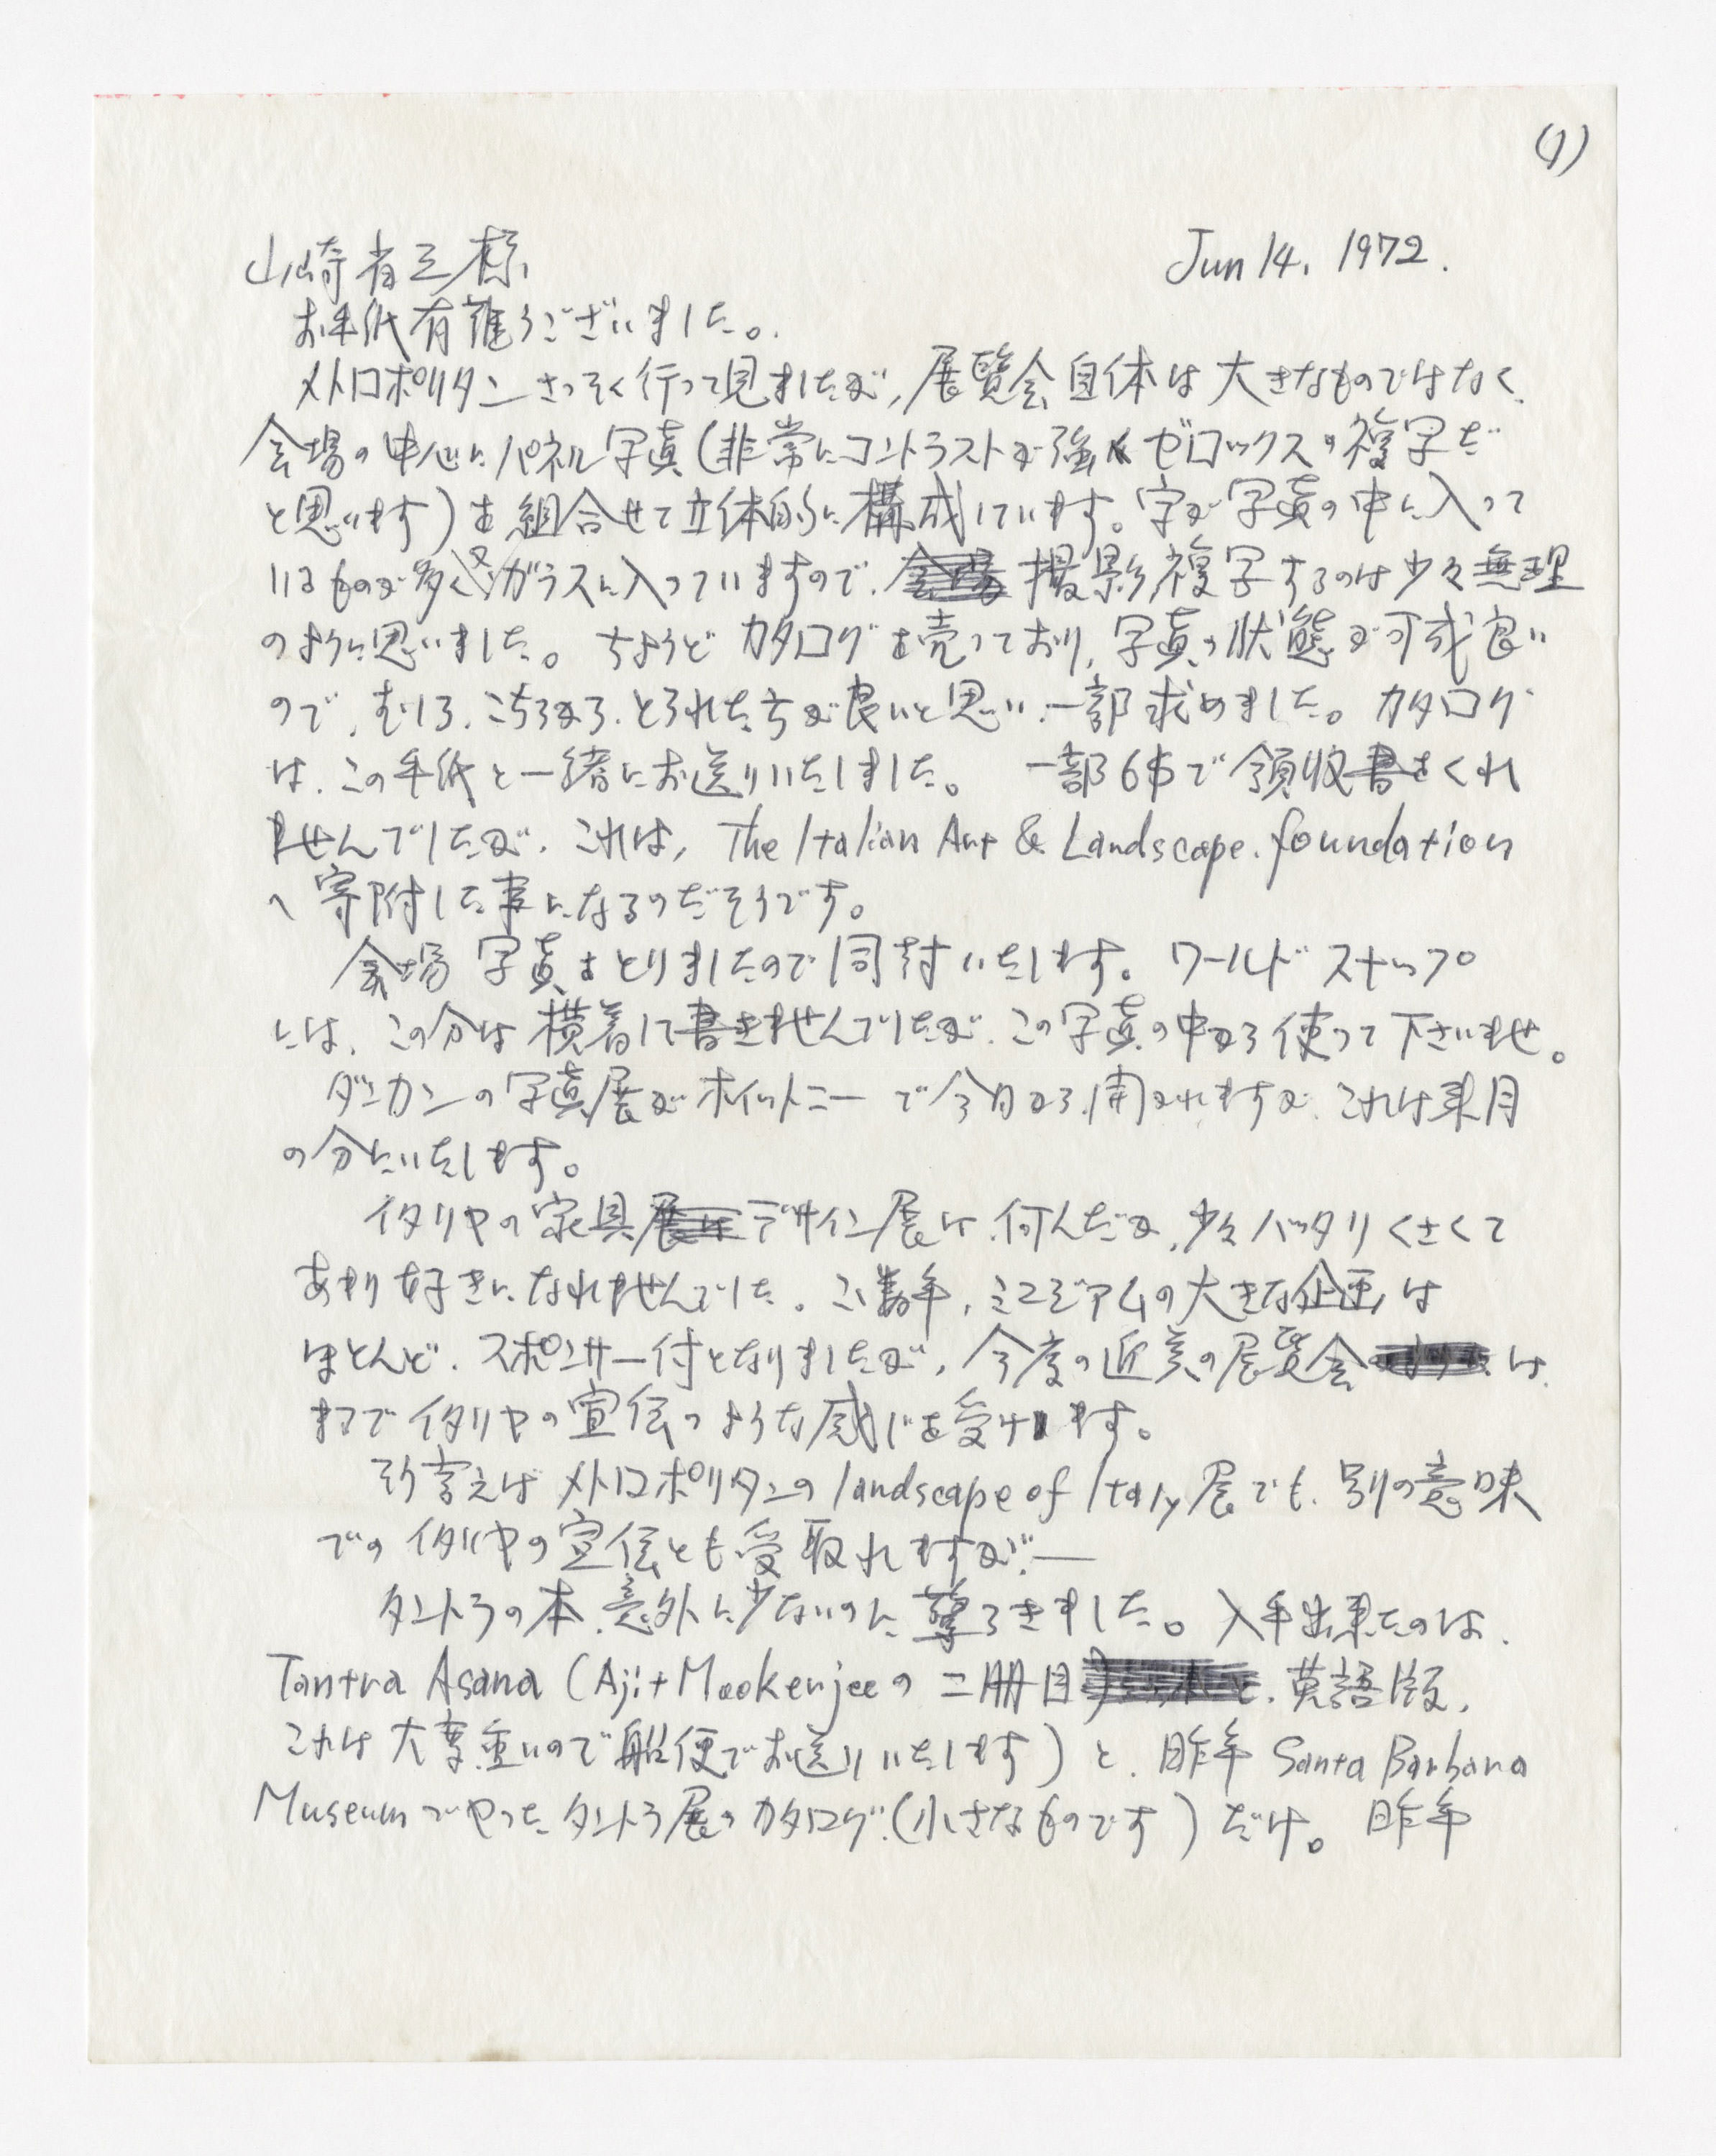 (1)
山崎省三様 Jun 14. 1972.
お手紙有難うございました。
メトロポリタンさっそく行って見ましたが、展覧会自体は大きなものではなく、
会場の中心にパネル写真(非常にコントラストが強くゼロックスの複写だ
と思います)を組合せて立体的に構成しています。字が写真の中に入って
いるものが多く、又ガラスに入っていますので、撮影複写するのは少々無理
のように思いました。ちょうどカタログを売っており、写真の状態が可成良い
ので、むしろ、こちらから、とられた方が良いと思い、一部求めました。カタログ
は、この手紙と一緒にお送りいたしました。 一部6$で領収書をくれ
ませんでしたが、これは、The Italian Art & Landscape. foundation
へ寄附した事になるのだそうです。
会場写真をとりましたので同封いたします。ワールドスナップ
には、この分は横着して書きませんでしたが、この写真の中から使って下さいませ。
ダンカンの写真展がホイットニーで今日から開かれますが、これは来月
の分にいたします。
イタリヤの家具デザイン展は、何んだか、少々ハッタリくさくて
あまり好きになれませんでした。ここ数年、ミュージアムの大きな企画は
ほとんど、スポンサー付となりましたが、今度の近美の展覧会は、
まるでイタリヤの宣伝のような感じを受けます。
そう言えばメトロポリタンのlandscape of Italy展でも、別の意味
でのイタリヤの宣伝とも受取れますが、―
タントラの本、意外に少ないのに驚ろきました。入手出来たのは、
Tantra Asana (Ajit Mookerjeeの二冊目、英語版、
これは大変重いので船便でお送りいたします)と、昨年 Santa Barbara
Museumでやったタントラ展のカタログ(小さなものです)だけ。昨年